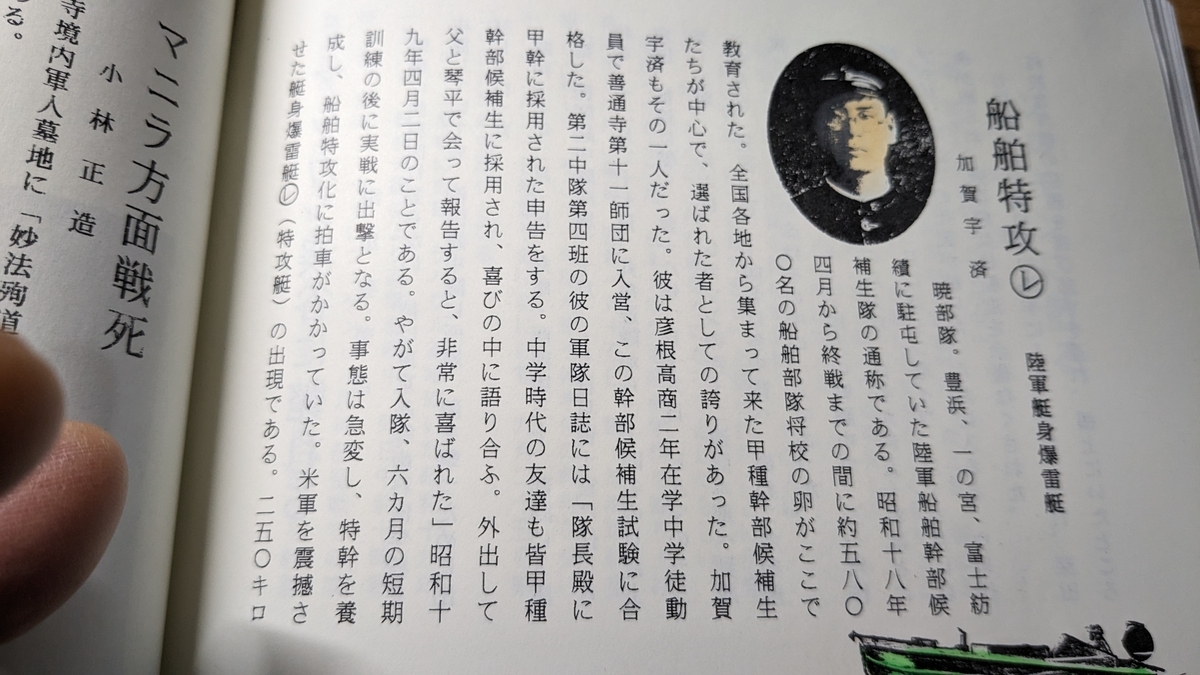 船舶特攻㋹
陸軍艇身爆雷艇
加賀宇済
暁部隊。豊浜、一の宮、富士紡
績に駐屯していた陸軍船舶幹部候
補生隊の通称である。昭和十八年
四月から終戦までの間に約五八〇
〇名の船舶部隊将校の卵がここで
教育された。全国各地から集まって来た甲種幹部候補生
たちが中心で、選ばれた者としての誇りがあった。加賀
宇済もその一人だった。彼は彦根高商二年在学中学徒動
員で善通寺第十一師団に入営、この幹部候補生試験に合
格した。第二中隊第四班の彼の軍隊日誌には「隊長殿に
甲幹に採用された申告をする。中学時代の友達も皆甲種
幹部候補生に採用され、喜びの中に語り合ふ。外出して
父と琴平で会って報告すると、非常に喜ばれた」昭和十
九年四月二日のことである。やがて入隊、六カ月の短期
訓練の後に実戦に出撃となる。事態は急変し、特幹を養
成し、船舶特攻化に拍車がかかっていた。米軍を震撼さ
せた艇身爆雷艇㋹（特攻艇）の出現である。二五〇キロ
マニラ方面戦死
小林正造
寺境内軍人墓地に「妙法殉道
る。